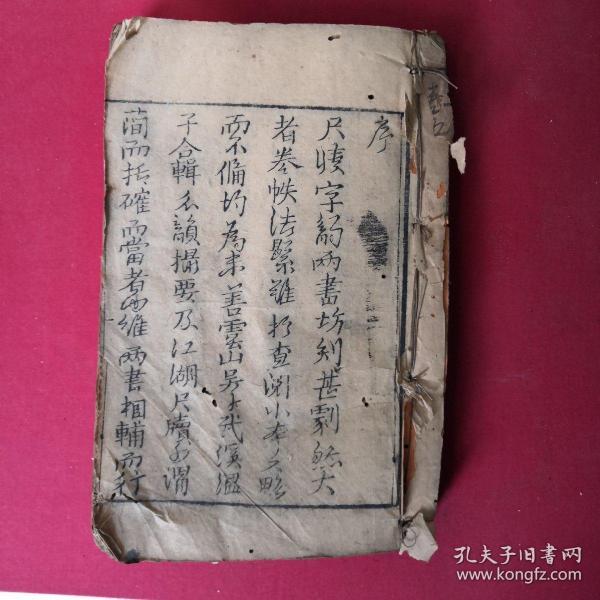 序
尺牘字韻兩書坊刻甚劇然大
者卷帙浩繁難於查閱小者又略
而不備均為未善雲山吳子
子合輯分韻撮要及江湖尺牘可謂
簡而括確而當者也維兩書相輔而行
孔夫子旧书网
www.kongfz.com